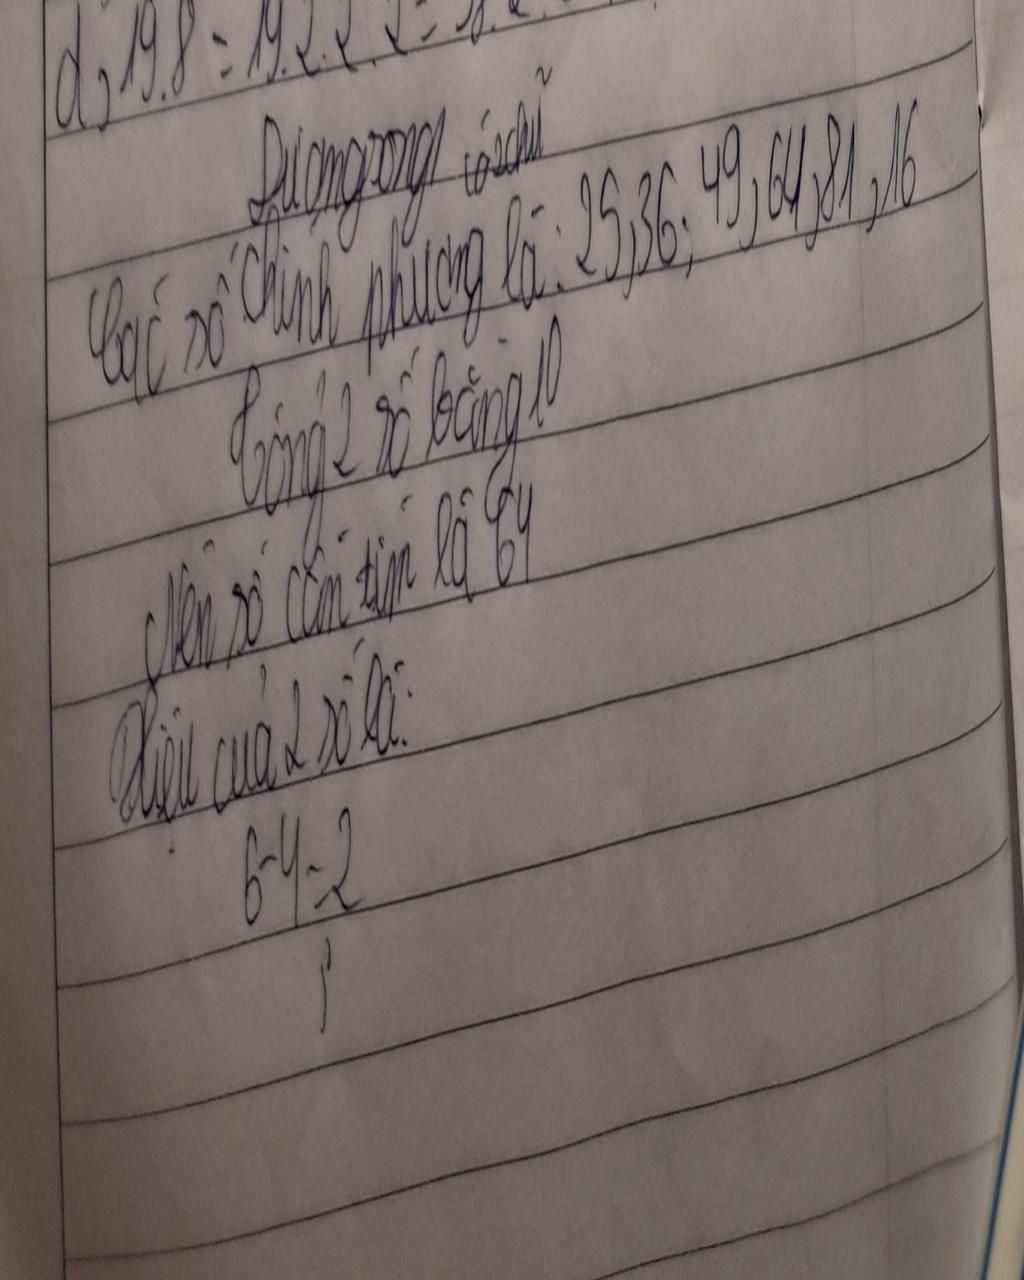 d, 19.8 = 19.2.2.2 =
có 2 chữ
Các số chính phương là: 25, 36; 49, 64, 81, 16
Tổng 2 số bằng 10
Nên số cần tìm là 64
Hiệu của 2 số là:
6-4=2